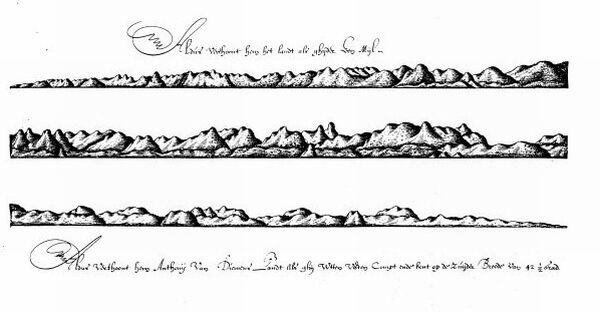 Aldus Verthoont hem het landt als ghijder Mijl
Aldus Verthoont hem Anthonij Van Diemens Landt als ghij Wtten Westen Compt ende bent op de Zuijder Breede van 42 ½ Grad